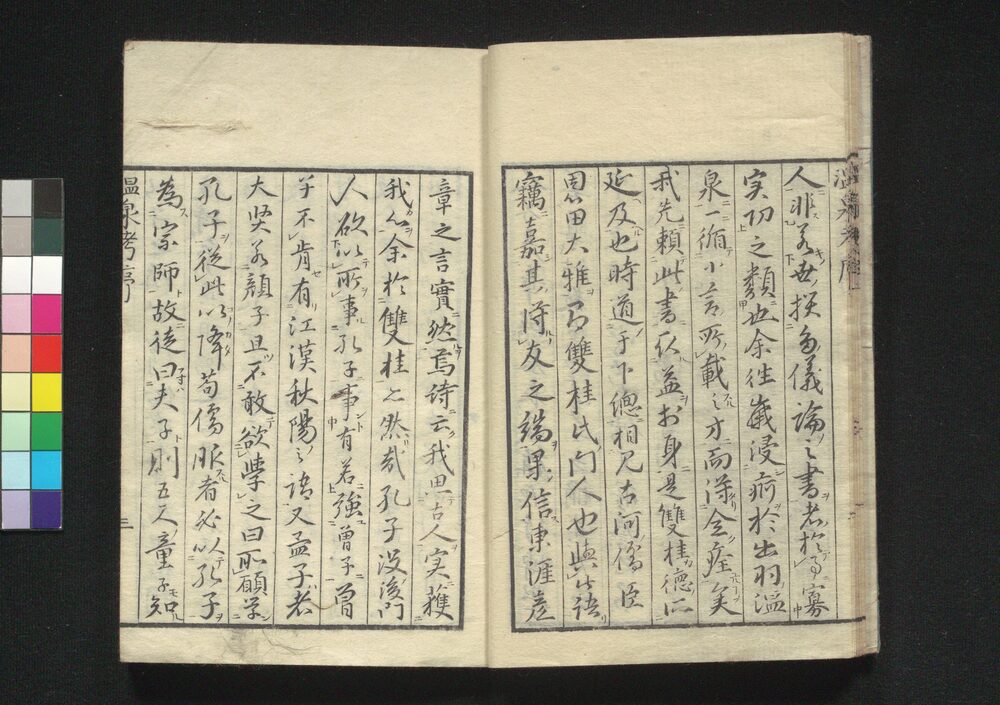 人非若世授多儀論之書者於事寡
実功之類也余往歳浸痾於出羽温
泉一循小言所載之方而得全痊矣
我先頼此書保益於身是雙桂徳所
延及也時道于下總相見古河儒臣
恩田大雅乃雙桂氏門人也與此語
竊嘉其得友之端果信東涯彦
章之言實然焉詩云我思古人実獲
我心余於雙桂亦然哉孔子没後門
人欲以所事孔子事有若強曽子曽
子不肯有江漢秋陽之語又孟子者
大賢若顔子且不敢欲學之曰所願學
孔子從此以降苟儒服者必以孔子
為宗師故徒曰夫子則五尺童子知
温泉考序
三